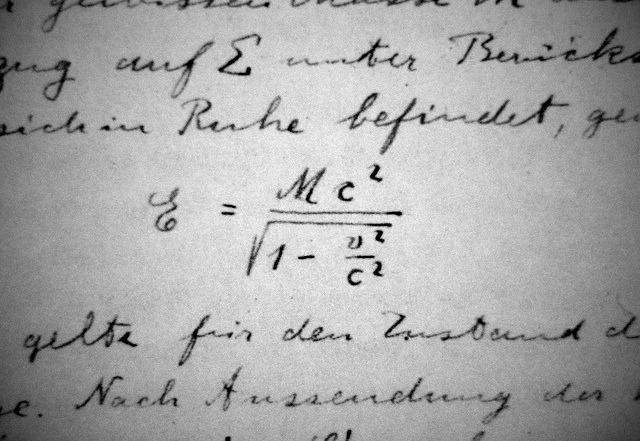 gewissen Masse M
zug auf Σ unter Berücks
sich in Ruhe befindet, gen
E = Mc² / √(1 - v²/c²)
gelte für den Zustand d
e. Nach Aussendung der